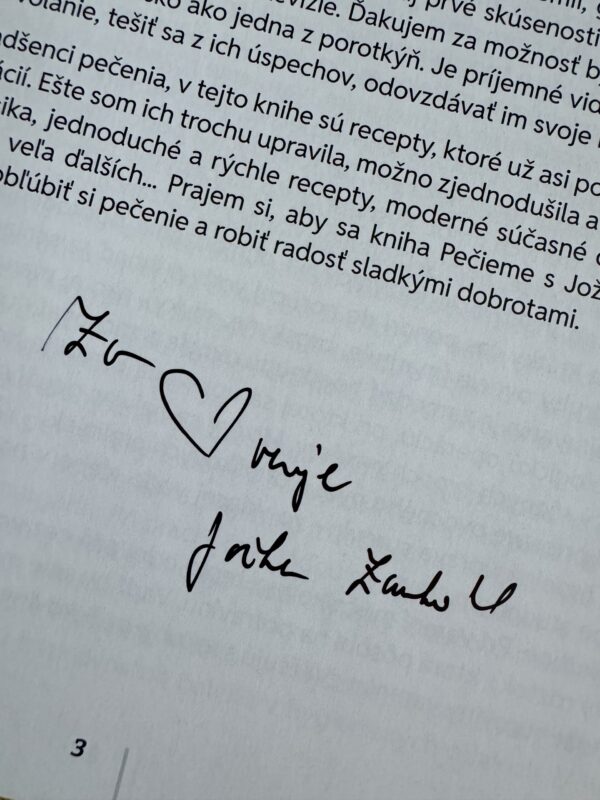 prvé skúsenosti
levízie. Ďakujem za možnosť by
ako jedna z porotkýň. Je príjemné vid
volanie, tešiť sa z ich úspechov, odovzdávať im svoje
dšenci pečenia, v tejto knihe sú recepty, ktoré už asi po
ácií. Ešte som ich trochu upravila, možno zjednodušila a
sika, jednoduché a rýchle recepty, moderné súčasné
veľa ďalších... Prajem si, aby sa kniha Pečieme s Jož
obľúbiť si pečenie a robiť radosť sladkými dobrotami.
Zo ♡ venuje
Jožka
3